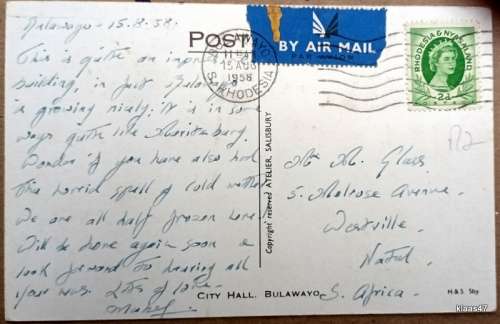 Bulawayo - 15.8.58.
This is quite an
building, in fact
is growing nicely. It is in some
ways quite like
Wonder if you have also had
the horrid spell of cold weather
We are all half frozen here.
Will be home again soon &
look forward to hearing all
your news. Lots of love.
POST
BULAWAYO
15 AUG
1958
S. RHODESIA
BY AIR MAIL
PAR AVION
RHODESIA & NYASALAND
2d
R2
Copyright reserved ATELIER, SALISBURY
Mr. M. Glass
5. Melrose Avenue.
Westville.
Natal.
S. Africa.
CITY HALL, BULAWAYO
H & S Sby
klaas47